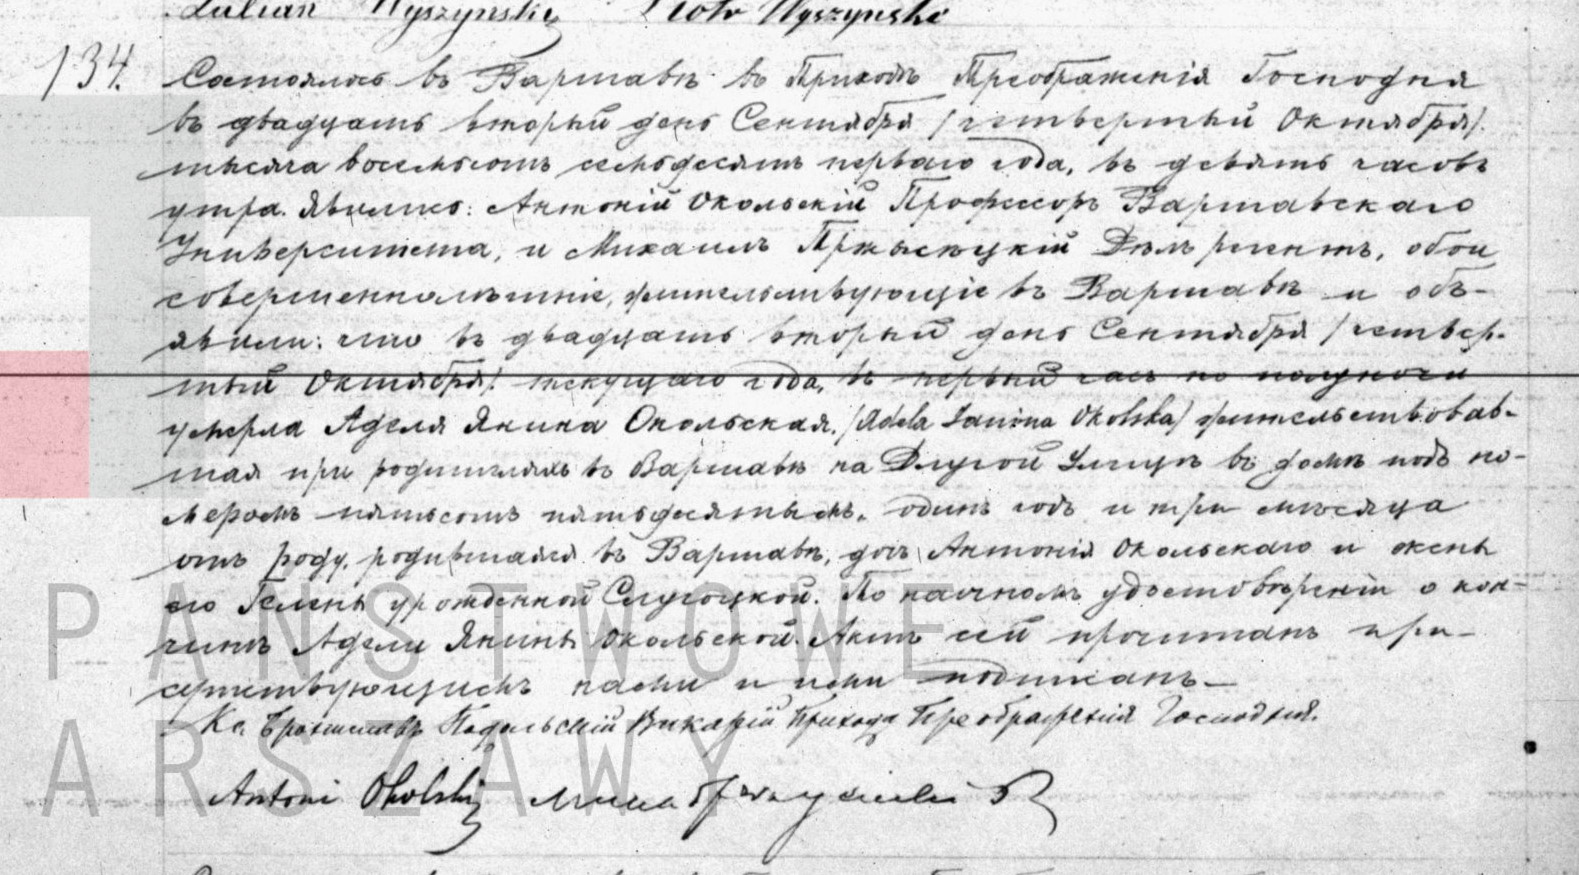 Julian Wyszyński Piotr Wyszyński
134.
Состоялось въ Варшавѣ въ Приходѣ Преображенія Господня
въ двадцать вторый день Сентября /четвертый Октября/
тысяча восемьсотъ семьдесятъ перваго года, въ девять часовъ
утра. Явились: Антоній Окольскій Профессоръ Варшавскаго
Университета, и Михаилъ Дѣлъ регентъ, обои
совершеннолѣтніе, жительствующіе въ Варшавѣ и объ-
явили: что въ двадцать вторый день Сентября /четвер-
тый Октября/ текущаго года, въ первый часъ по полуночи
умерла Аделя Янина Окольская, /Adela Janina Okolska/ жительствовав-
шая при родителяхъ въ Варшавѣ на Длугой Улицѣ въ домѣ подъ но-
меромъ пятьсотъ пятьдесятымъ, одинъ годъ и три мѣсяца
отъ роду, родившаяся въ Варшавѣ, дочь Антонія Окольскаго и жены
его Гелены урожденной Слугоцкой. По настномъ удостовѣреніи о кон-
чинѣ Адели Янины Окольской. Актъ сей прочитанъ при-
сутствующимъ нами и ими подписанъ—
Кс. Брониславъ Подольскій Викарій Прихода Преображенія Господня.
Antoni Okolski
PAŃSTWOWE
ARSZAWY